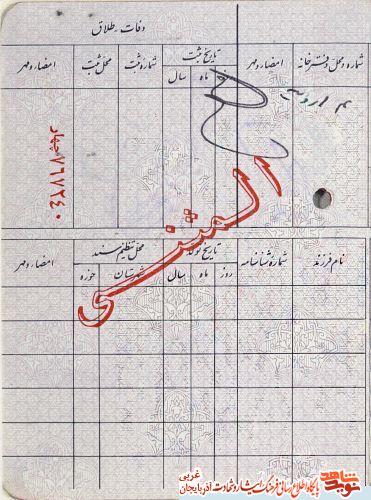 وفات - طلاق
شماره و محل دفترخانه
امضاء و مهر
تاریخ ثبت
ماه
سال
شماره ثبت
محل ثبت
امضاء و مهر
المثنی
نام فرزند
شماره شناسنامه
تاریخ تولد
روز
ماه
سال
محل تنظیم سند
شهرستان
حوزه
امضاء و مهر
نوید شاهد
پایگاه اطلاع رسانی فرهنگ ایثار و شهادت آذربایجان غربی